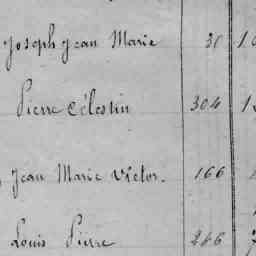 Joseph Jean Marie 30
Pierre Célestin 304
Jean Marie Victor. 166
Louis Pierre 266